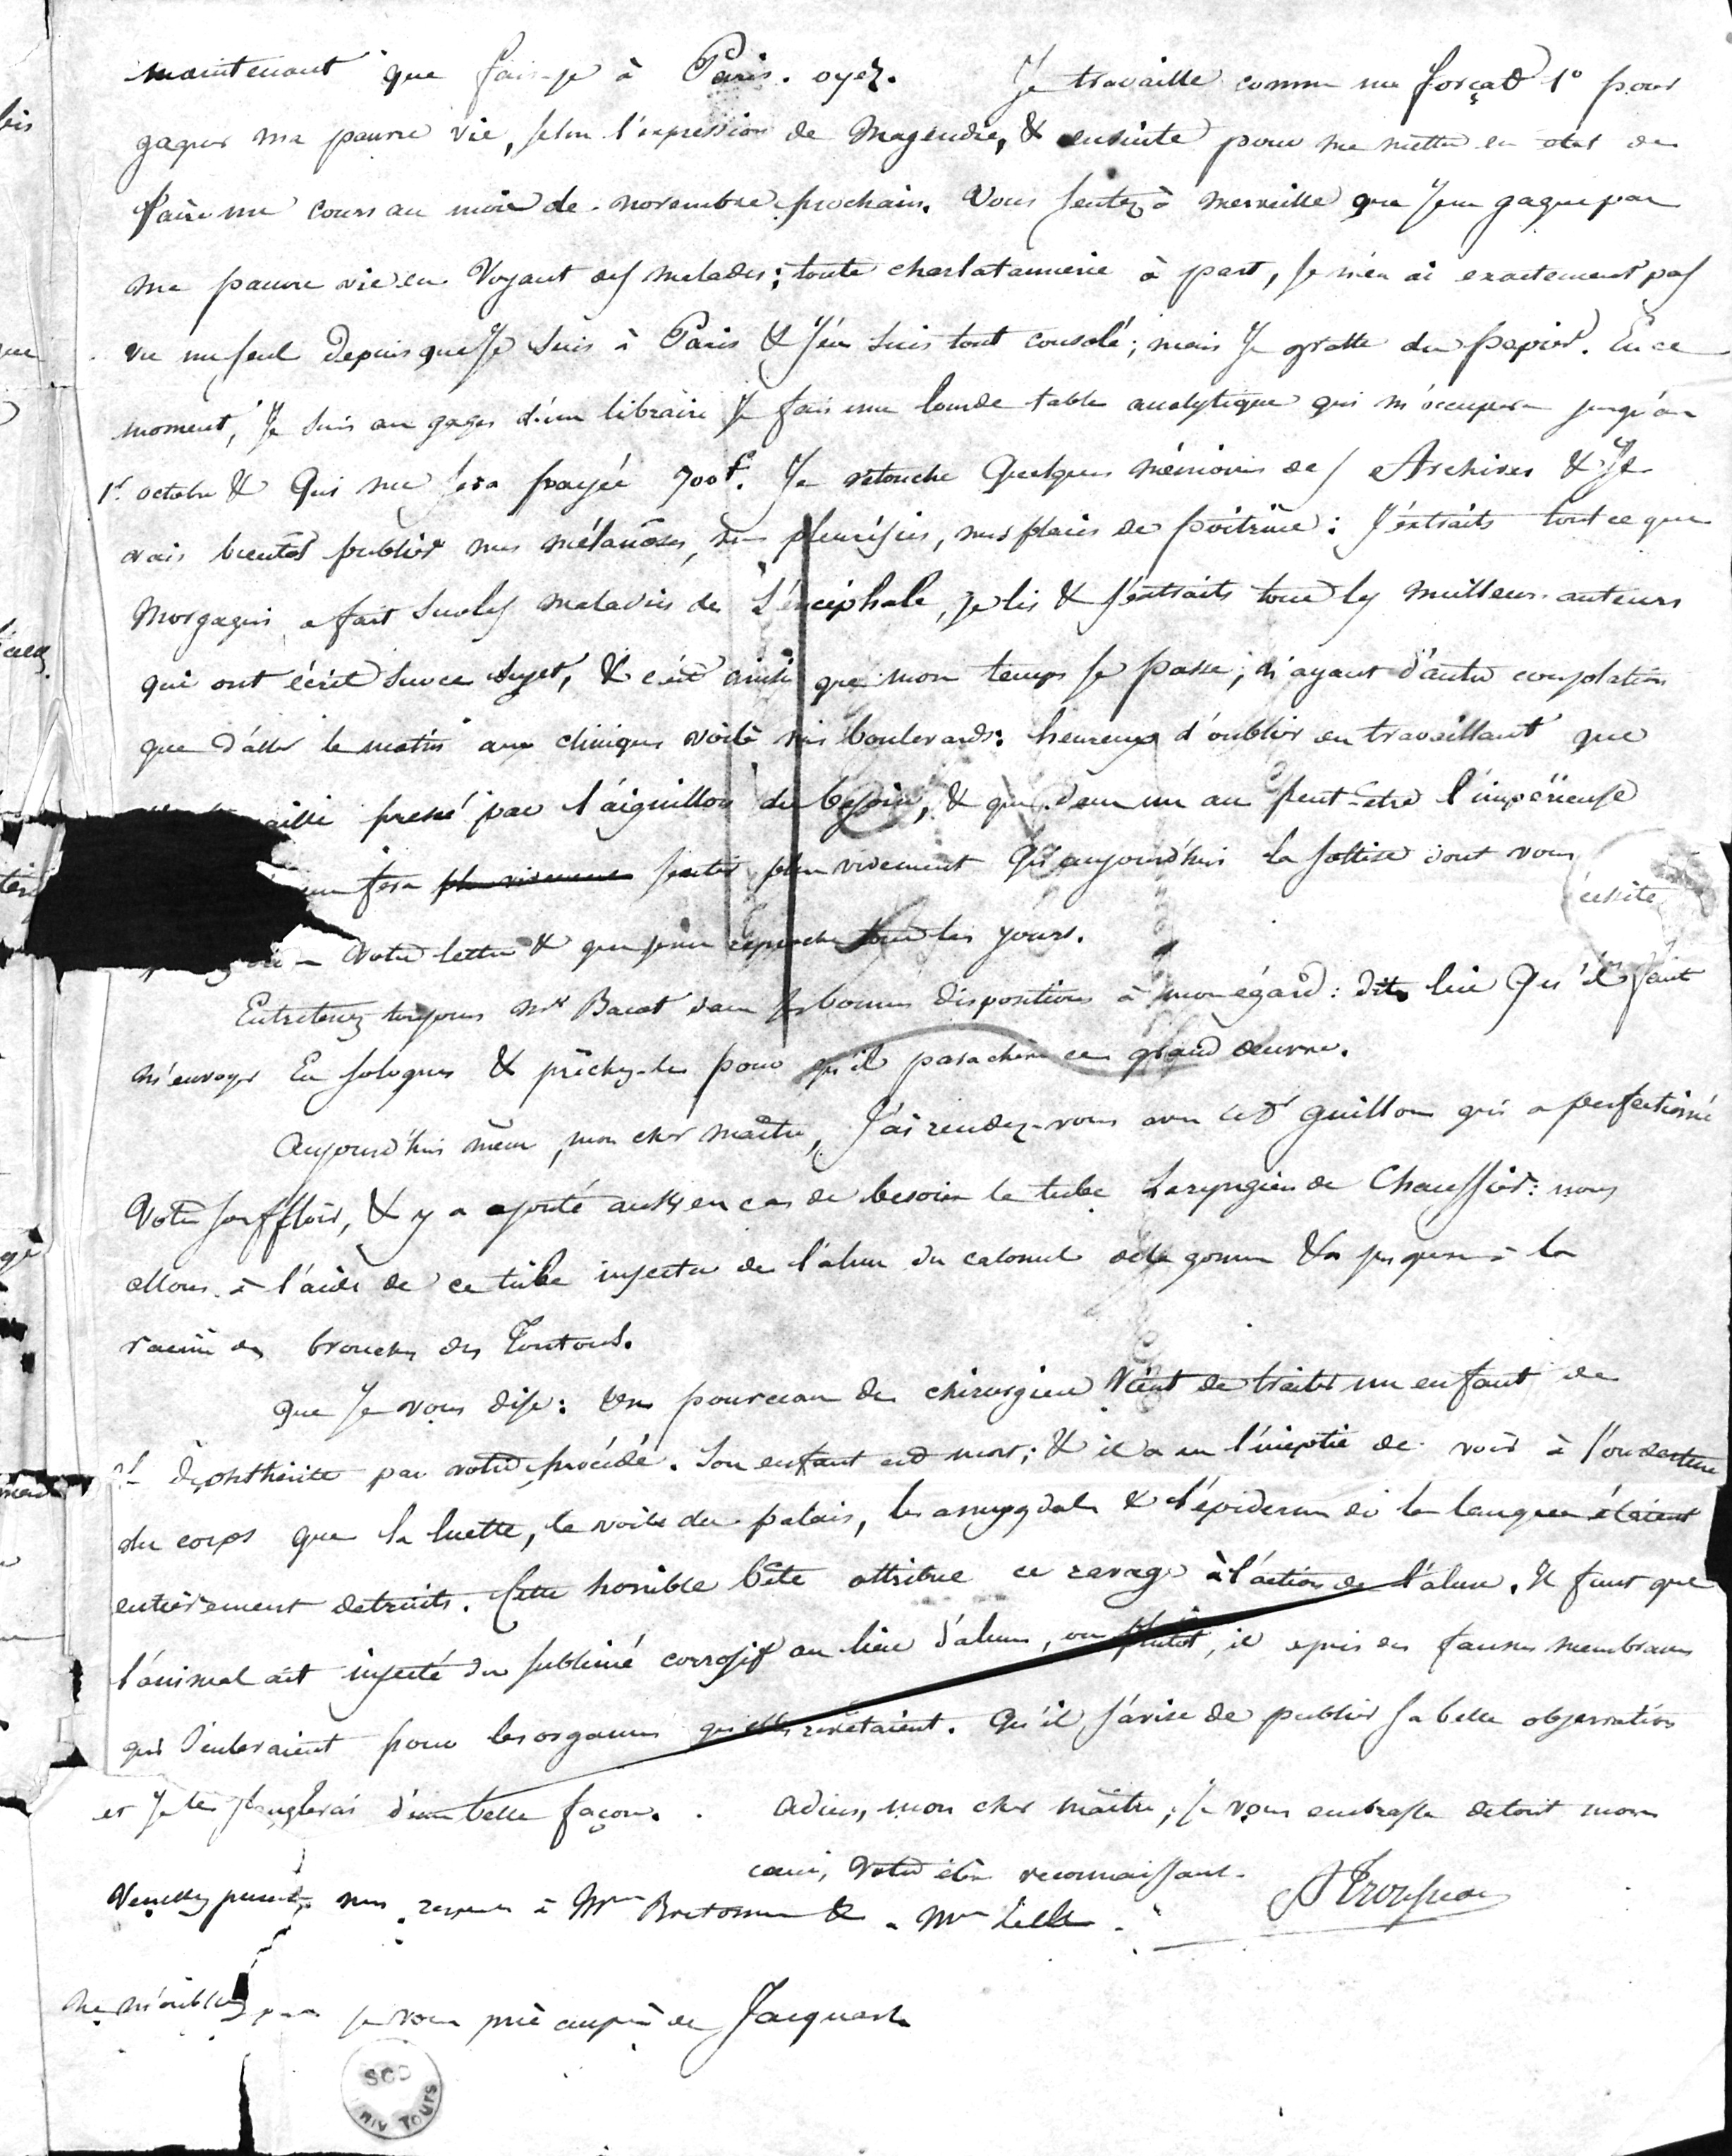 maintenant que fais-je à Paris. oyez. Je travaille comme un forçat 1° pour
gagner ma pauvre vie, selon l'expression de Magendie, & ensuite pour me mettre en état de
faire un cours au mois de novembre prochain. Vous sentez à merveille que je ne gagne pas
ma pauvre vie en voyant des malades; toute charlatannerie à part, je n'en ai exactement pas
vu un seul depuis que je suis à Paris & j'en suis tout consolé; mais je gratte du papier. En ce
moment, je suis au gages d'un libraire je fais une lourde table analytique qui m'occupera jusqu'au
1er octobre & qui me sera payée 700f. Je retouche quelques mémoires des Archives & je
vais bientôt publier mes mélanoses, mes pleurésies, mes plaies de poitrine: j'extraits tout ce que
Morgagni a fait sur les maladies de l'encéphale, je lis & j'extraits tous les meilleurs auteurs
qui ont écrit sur ce sujet, & c'est ainsi que mon temps se passe; n'ayant d'autre consolation
que d'aller le matin aux cliniques voilà mes boulevards: heureux d'oublier en travaillant que
aille pressé par l'aiguillon du besoin, & que dans un an peut-être l'impérieuse
me fera plus vivement sentir plus vivement qu'aujourd'hui la sottise dont vous
cessité
votre lettre & que je me reproche tous les jours.
Entretenez toujours Mr Bacot dans ses bonnes dispositions à mon égard: dites lui qu'il faut
m'envoyer en Sologne & prêchez-le pour qu'il parachève ce grand œuvre.
Aujourd'hui même, mon cher maître, j'ai rendez-vous avec le Dr Guillon qui a perfectionné
votre souffloir, & y a ajouté aussi en cas de besoin le tube laryngien de Chaussier: nous
allons à l'aide de ce tube injecter de l'alun du calomel de la gomme &a jusques à la
racine des bronches des toutous.
Que je vous dise: Un pourceau de chirurgien vient de traiter un enfant de
diphthérite par votre procédé. Son enfant est mort; & il a eu l'ineptie de voir à l'ouverture
du corps que la luette, le voile du palais, les amygdales & l'épiderme de la langue étaient
entièrement detruits. Cette horrible bête attribue ce ravage à l'action de l'alun. Il faut que
l'animal ait injecté du sublimé corrosif au lieu d'alun, ou plutôt, il a pris des fausses membranes
qui s'enlevaient pour les organes qu'elles revêtaient. Qu'il s'avise de publier sa belle observation
et je le sanglerai d'une belle façon. Adieu, mon cher maître, je vous embrasse de tout mon
cœur, votre élève reconnaissant.
A Trousseau
Veuillez présenter mes respects à Mme Bretonneau & à Mme Lecle
Ne m'oubliez pas je vous prie auprès de Jacquart
SCD
UNIV TOURS